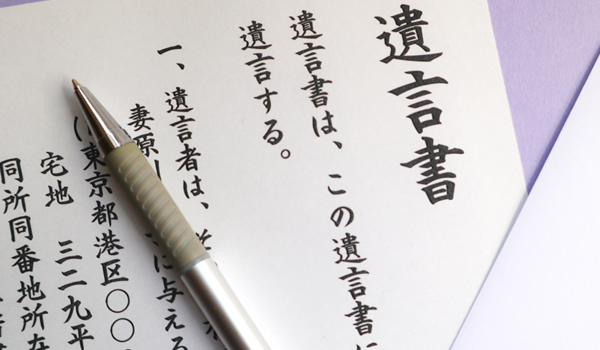 遺言書
遺言書は、この遺言書に
遺言する。
一、遺言者は、そ
妻原 に与える
(東京都港区〇〇
宅地 三二九平
同所同番地所在